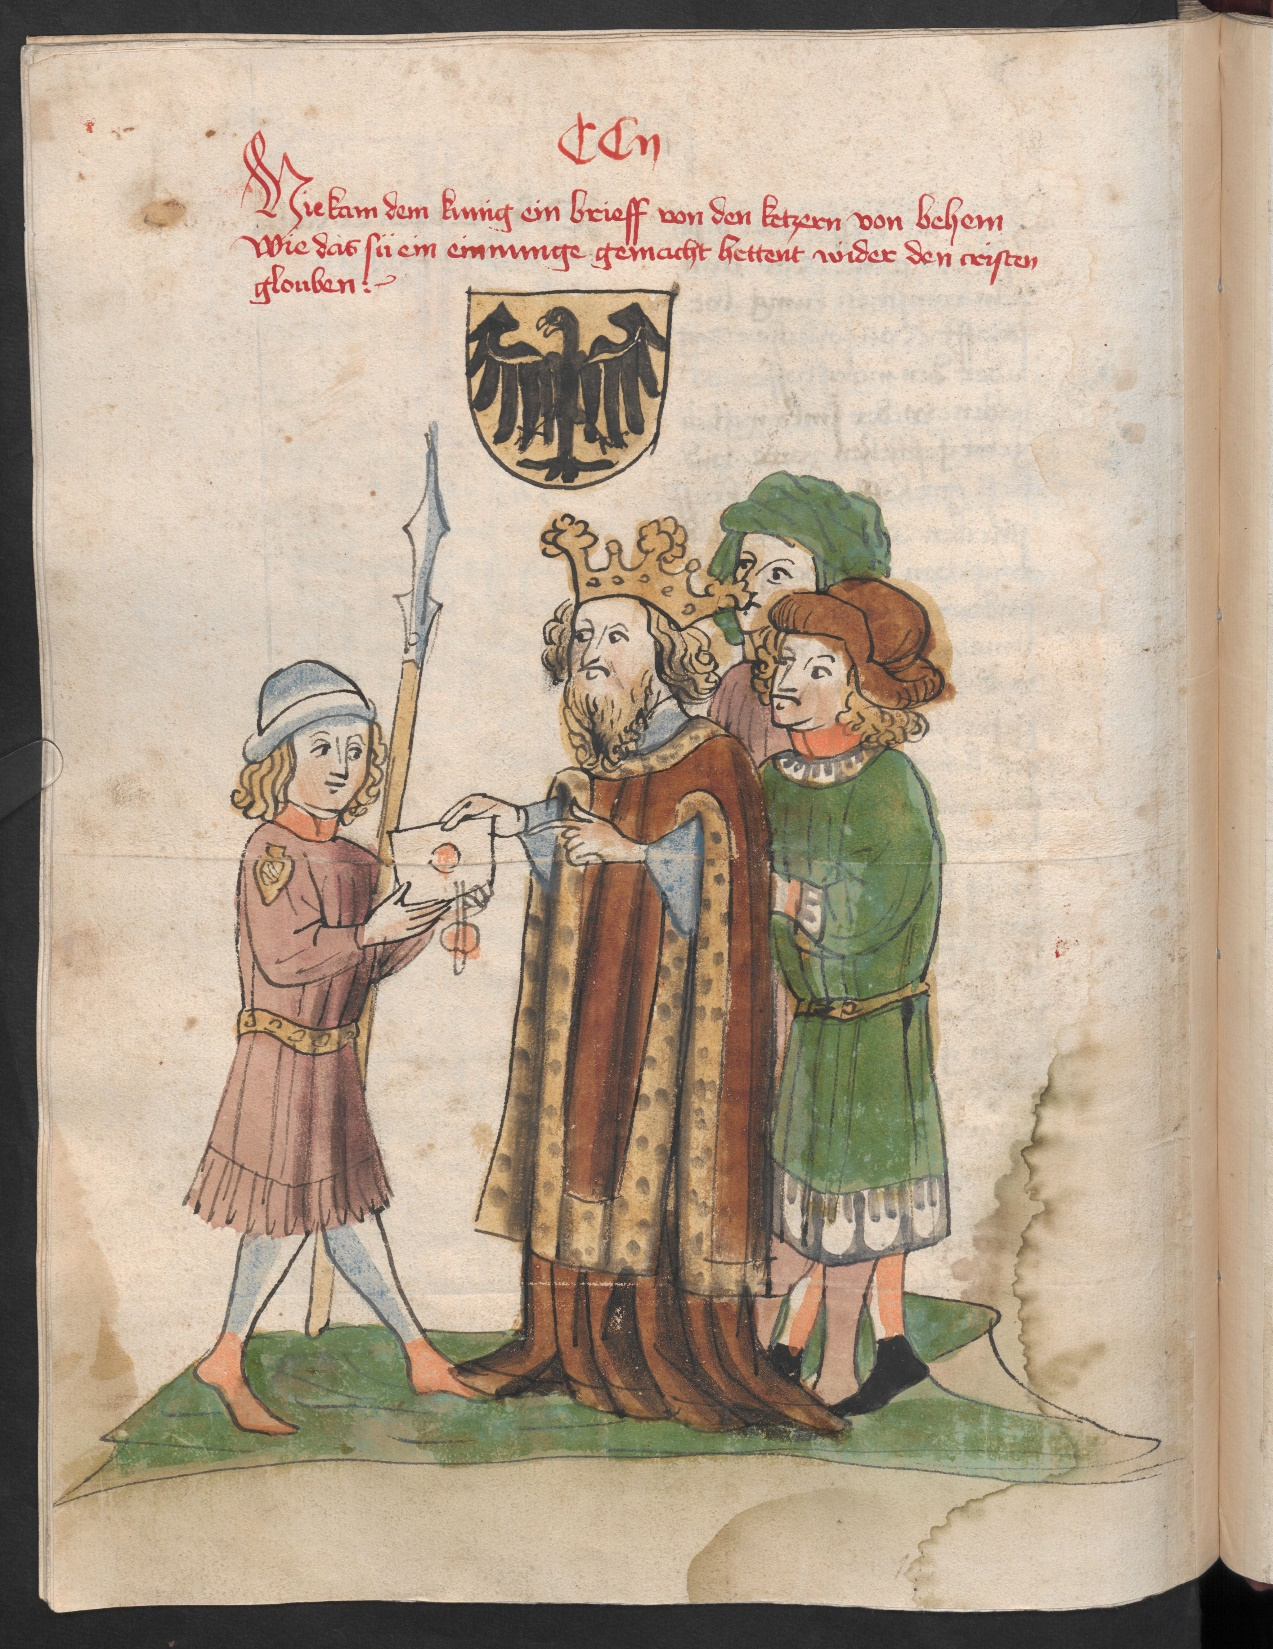 CCij
Hie kam dem kunig ein brieff von den ketzern von behem
Wie das sü ein einnunge gemacht hettent wider den cristen
glouben :~